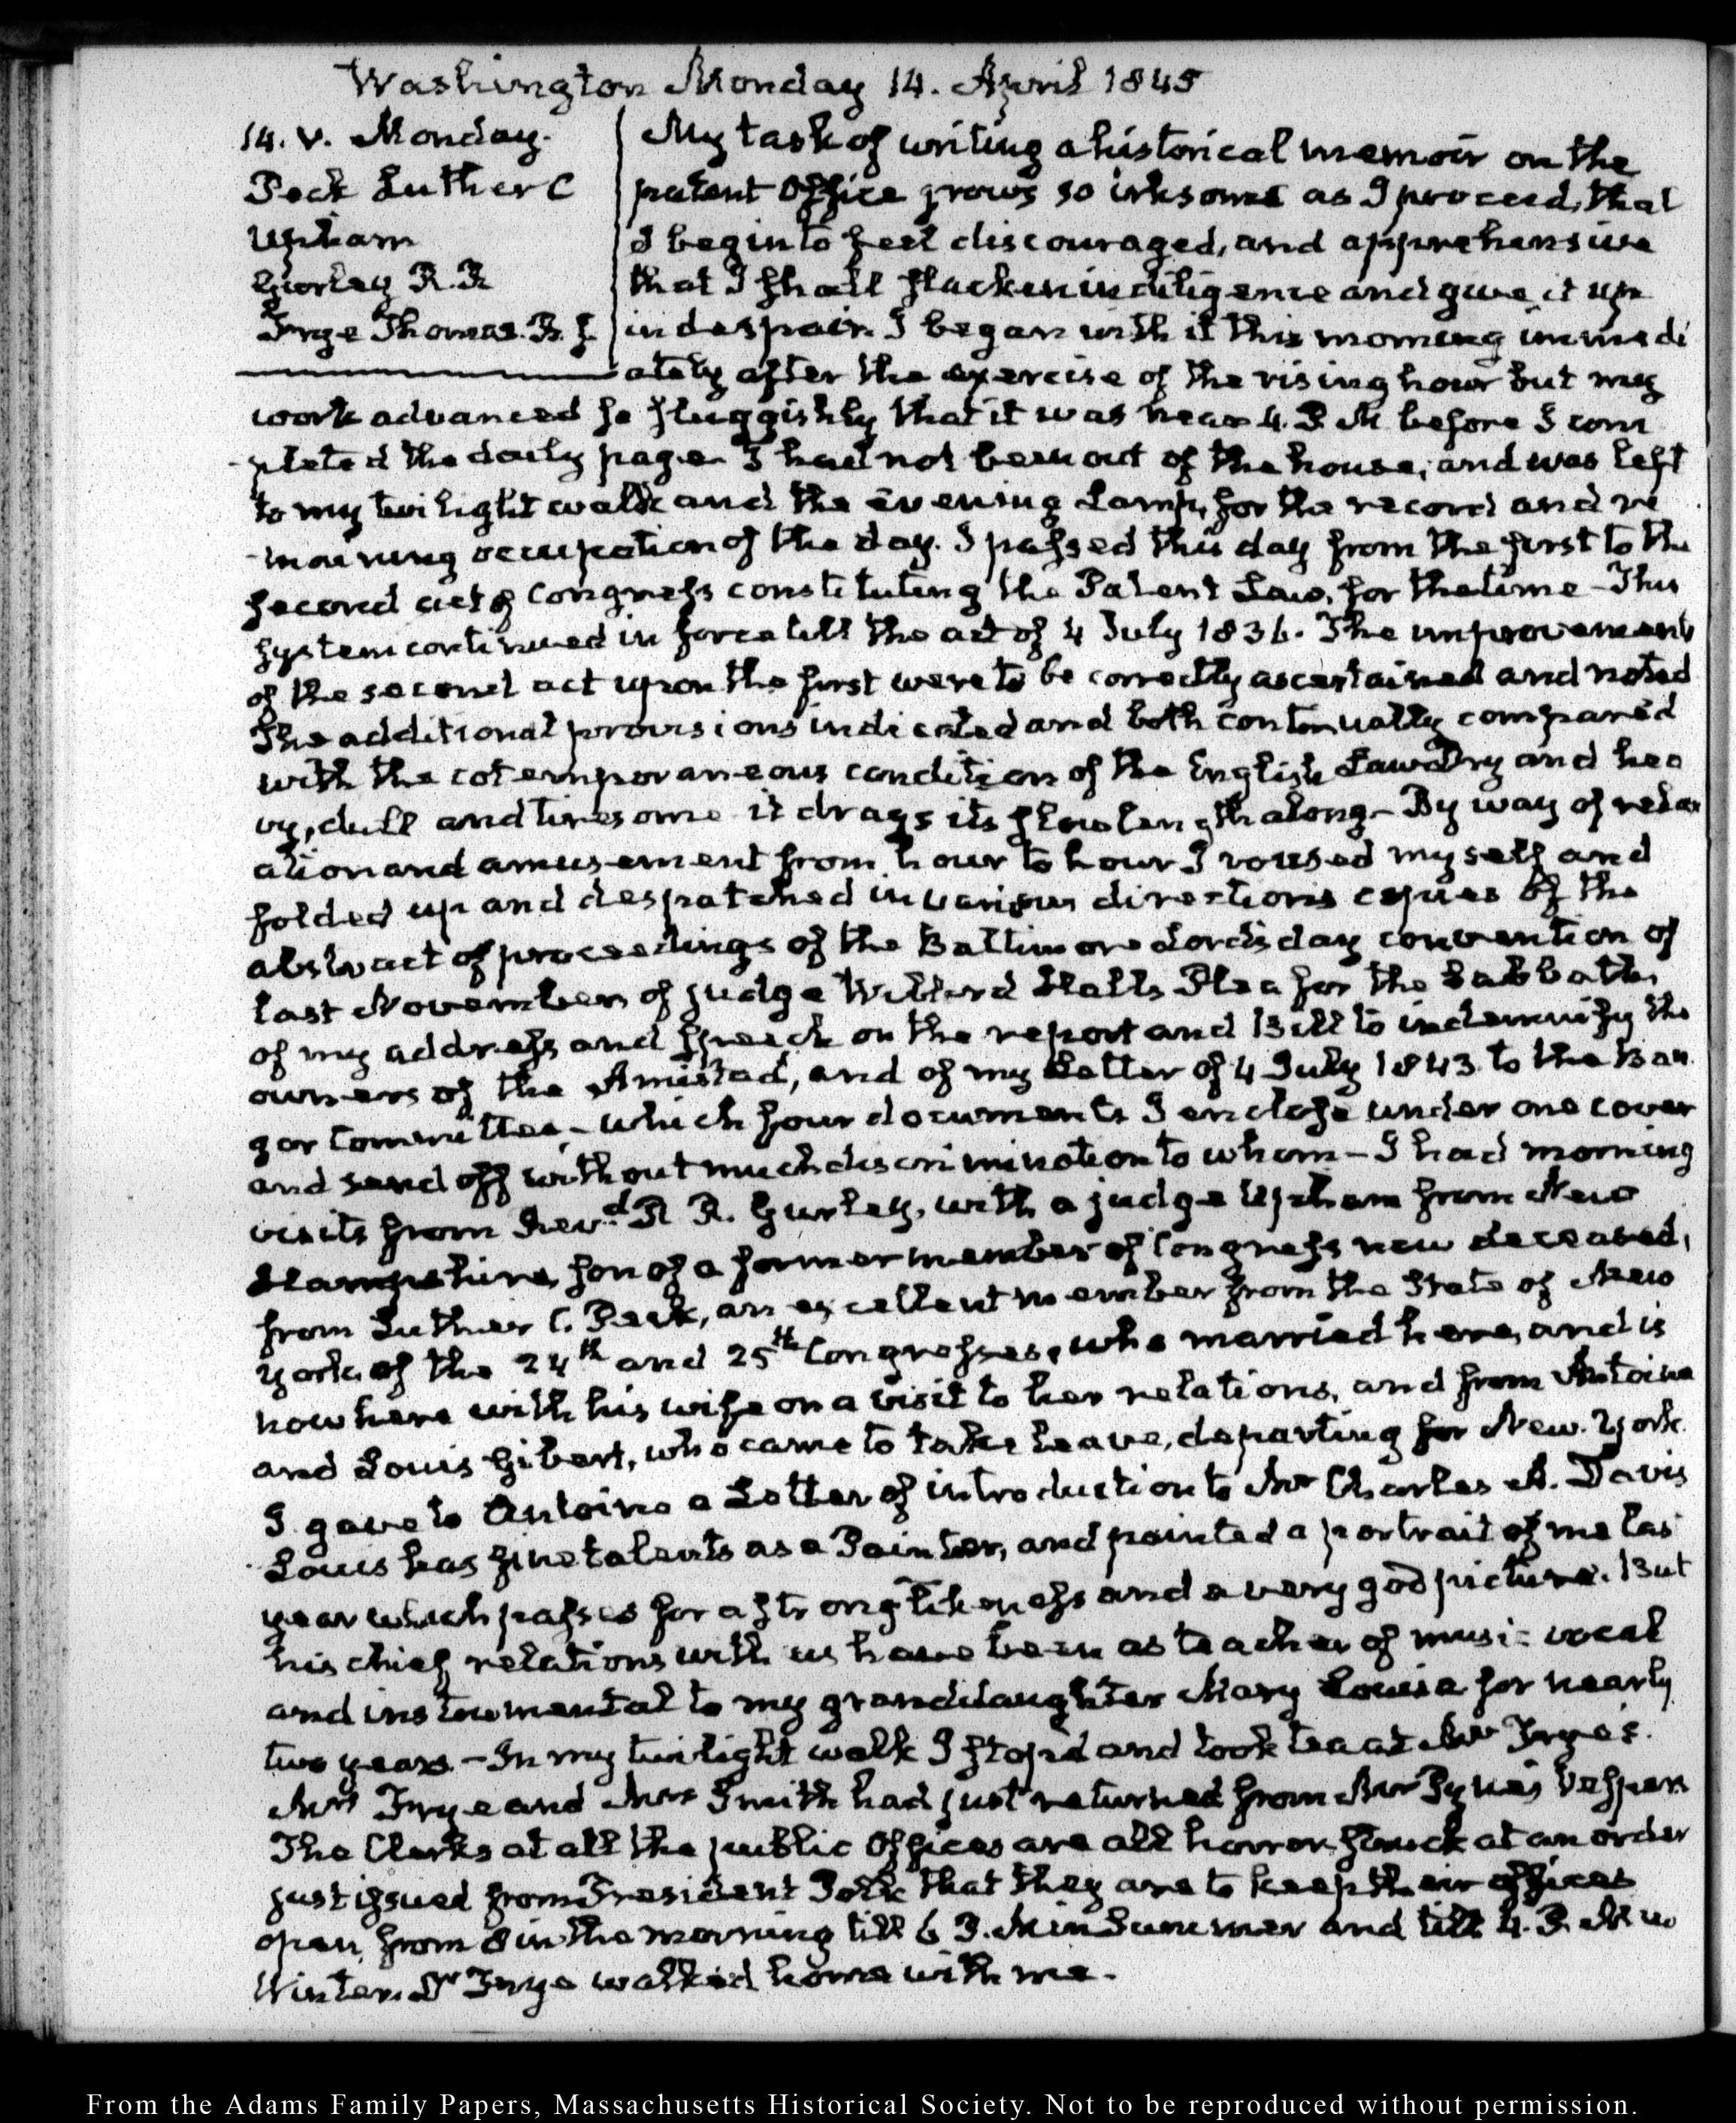 Washington Monday 14. April 1845
14. V. Monday.
Peck Luther C
Upham
Gurley R. R
Frye Thomas. B. J.
My task of writing a historical memoir on the
patent Office grows so irksome as I proceed, that
I begin to feel discouraged, and apprehensive
that I shall slacken in diligence and give it up
in despair. I began with it this morning immedi
ately after the exercise of the rising hour but my
work advanced so sluggishly that it was near 4. P. M. before I com
-pleted the daily page. I had not been out of the house, and was left
to my twilight walk and the evening Lamp, for the record and re
-maining occupation of the day. I passed this day from the first to the
second act of Congress constituting the Patent Law, for the time - This
system continued in force till the act of 4 July 1836. The improvements
of the second act upon the first were to be correctly ascertained and noted
The additional provisions indicated and both continually compared
with the cotemporaneous condition of the English Law Dry and hea
vy, dull and tiresome it drags its slow length along - By way of relax
ation and amusement from hour to hour I roused myself and
folded up and despatched in various directions copies of the
abstract of proceedings of the Baltimore Lord's day convention of
last November, of judge Willard Hall's Plea for the Sabbath,
of my address and speech on the report and Bill to indemnify the
owners of the Amistad, and of my Letter of 4 July 1843. to the Ban
gor Committee - which four documents I enclose under one cover
and send off without much discrimination to whom - I had morning
visits from Rev.d R R. Gurley, with a judge Upham from New
Hampshire, son of a former member of Congress now deceased,
from Luther C. Peck, an excellent member from the State of New
York, of the 24th and 25th Congresses, who married here, and is
now here with his wife on a visit to her relations, and from Antoine
and Louis Gibert, who came to take leave, departing for New. York.
I gave to Antoine a Letter of introduction to Mr Charles A. Davis
Louis has fine talents as a Painter, and painted a portrait of me las
year which passes for a strong likeness and a very good picture. But
his chief relations with us have been as teacher of music vocal
and instrumental to my granddaughter Mary Louisa for nearly
two years. - In my twilight walk I stop'd and took tea at Mr Frye's.
Mrs Frye and Mrs Smith had just returned from Mr Pyne's Vespers
The Clerks at all the public Offices are all horror struck at an order
just issued from President Polk that they are to keep their offices
open from 8 in the morning till 6 P. M in Summer and till 4. P. M in
Winter. Mr Frye walked home with me.
From the Adams Family Papers, Massachusetts Historical Society. Not to be reproduced without permission.